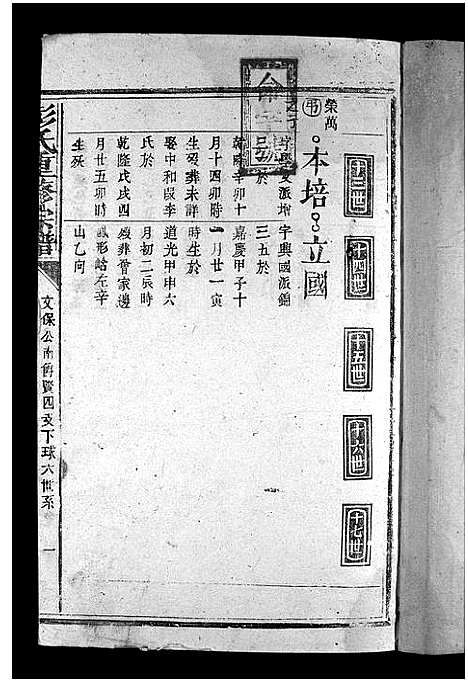 十三世
十四世
十五世
十六世
十七世
榮萬
本培
立國
字興國派錦
三五於
乾隆辛卯十
嘉慶甲子十
月十四卯時
一月廿一寅
生歿葬未詳
時生於
娶中和段李
道光甲申六
氏於
月初二辰時
乾隆戊戌四
歿葬曾家邊
月廿五卯時
形嶺左辛
生死
山乙向
彭氏重修宗譜
文保公南舊覽四支下球六世系
一